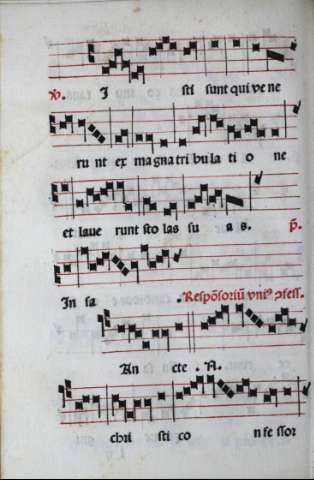 ℣. I sti sunt qui ve ne
ru nt ex magna tri bu la ti o ne
et laue runt sto las su a s. p̄.
In sa . Respōsoriū vniꝰ ꝯfess.
An cte . A.
chri sti co n fe ssor